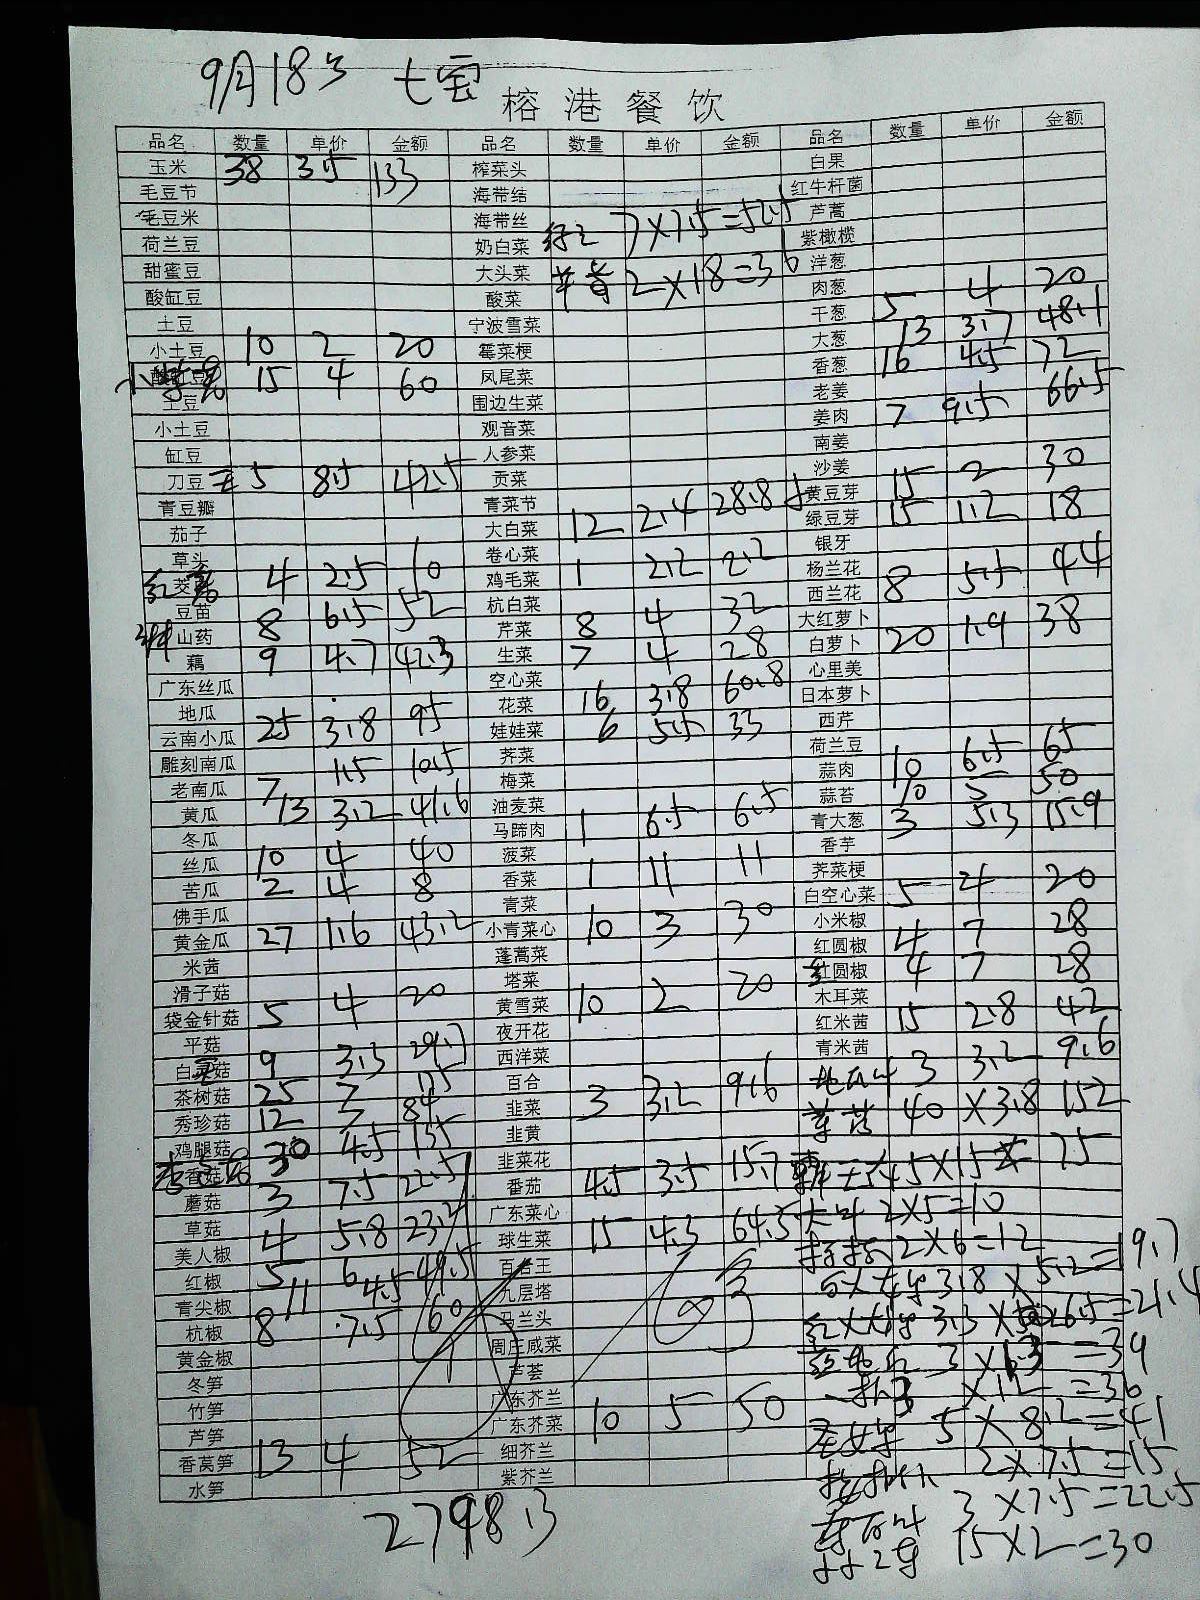 9月18号 七宝
榕港餐饮
品名 数量 单价 金额 品名 数量 单价 金额 品名 数量 单价 金额
玉米 38 3.5 133 榨菜头 白果
毛豆节 海带结 红牛杆菌
毛豆米 海带丝 7×7.5=52.5 芦蒿
荷兰豆 奶白菜 紫橄榄
甜蜜豆 大头菜 2×18=36 洋葱
酸缸豆 酸菜 肉葱 5 4 20
土豆 宁波雪菜 干葱 13 3.7 48.1
小土豆 10 2 20 霉菜梗 大葱
15 4 60 凤尾菜 香葱 16 4.5 72
土豆 围边生菜 老姜
小土豆 观音菜 姜肉 7 9.5 66.5
缸豆 人参菜 南姜
刀豆 5 8.5 42.5 贡菜 沙姜
青豆瓣 青菜节 黄豆芽 15 2 30
茄子 大白菜 12 2.4 28.8 绿豆芽 15 1.2 18
草头 卷心菜 银牙
4 2.5 10 鸡毛菜 1 2.2 2.2 杨兰花
豆苗 8 6.5 52 杭白菜 西兰花 8 5.5 44
山药 芹菜 8 4 32 大红萝卜
藕 9 4.7 42.3 生菜 7 4 28 白萝卜 20 1.9 38
广东丝瓜 空心菜 心里美
地瓜 花菜 16 3.8 60.8 日本萝卜
云南小瓜 25 3.8 95 娃娃菜 6 5.5 33 西芹
雕刻南瓜 荠菜 荷兰豆
老南瓜 7 1.5 10.5 梅菜 蒜肉 10 6.5 65
黄瓜 13 3.2 41.6 油麦菜 蒜苔 10 5 50
冬瓜 马蹄肉 1 6.5 6.5 青大葱 3 5.3 15.9
丝瓜 10 4 40 菠菜 香芋
苦瓜 2 4 8 香菜 1 11 11 荠菜梗
佛手瓜 青菜 白空心菜 5 4 20
黄金瓜 27 1.6 43.2 小青菜心 10 3 30 小米椒
米茜 蓬蒿菜 红圆椒 4 7 28
滑子菇 塔菜 圆椒 4 7 28
袋金针菇 5 4 20 黄雪菜 10 2 20 木耳菜
平菇 夜开花 红米茜 15 2.8 42
白灵菇 9 3.3 29.7 西洋菜 青米茜
茶树菇 25 7 175 百合 3 3.2 9.6
秀珍菇 12 7 84 韭菜 3 3.2 9.6 40 ×3.8 152
鸡腿菇 30 4.5 135 韭黄
香菇 韭菜花 15 75
蘑菇 3 7.5 22.5 番茄 4.5 3.5 15.7
草菇 4 5.8 23.2 广东菜心 2×5=10
美人椒 球生菜 15 4.3 64.5 2×6=12
红椒 5 百合王 3.8×5.2=19.7
青尖椒 11 4.5 49.5 九层塔
杭椒 8 7.5 60 马兰头 3.3×6.5=21.4
黄金椒 周庄咸菜
冬笋 芦荟 3 ×12=36
竹笋 广东芥兰
芦笋 广东芥菜 10 5 50 圣女果 5×8.2=41
香莴笋 13 4 52 细芥兰 2×7.5=15
水笋 紫芥兰 3×7.5=22.5
2798.3 15×2=30